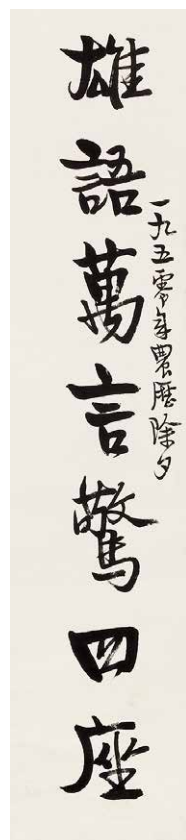 雄語萬言驚四座
一九五零年農歷除夕